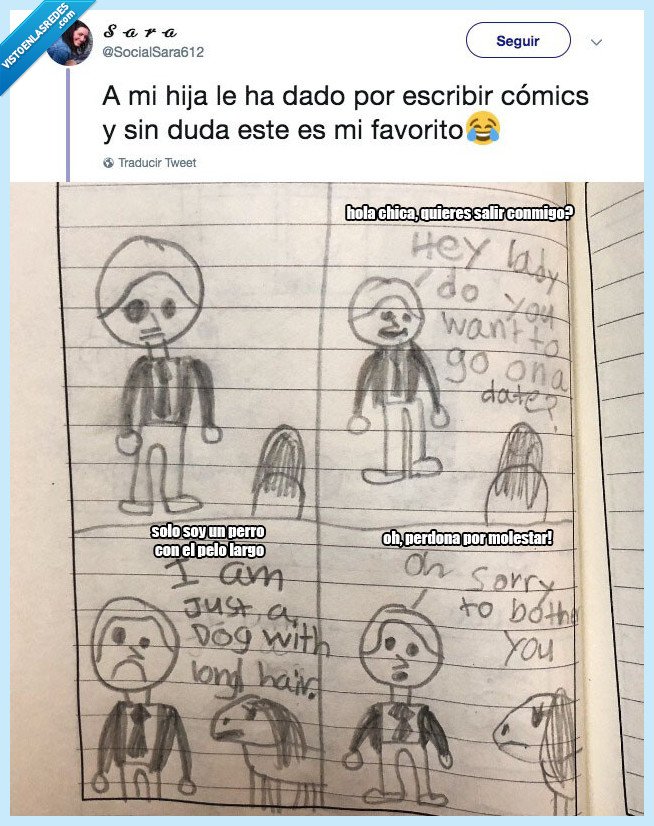 VISTOENLASREDES
.com
Sara
@SocialSara612
Seguir
A mi hija le ha dado por escribir cómics
y sin duda este es mi favorito😂
Traducir Tweet
hola chica, quieres salir conmigo?
Hey lady
do you
want to
go on a
date?
solo soy un perro
con el pelo largo
I am
Just a
Dog with
long hair.
oh, perdona por molestar!
Oh sorry
to bothe
you